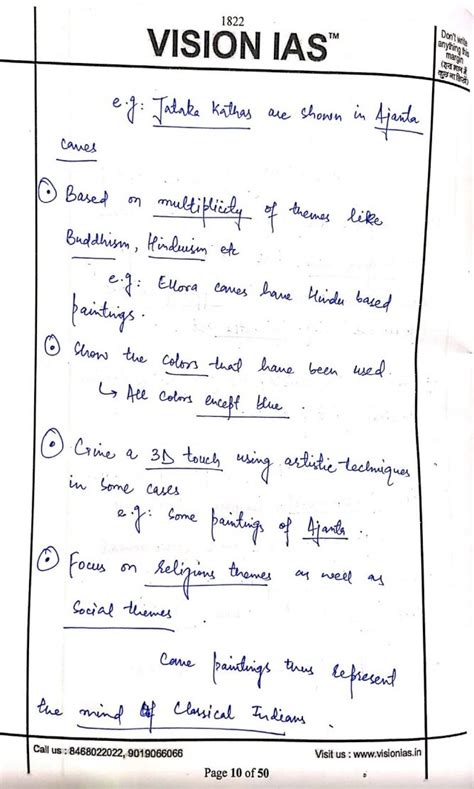 1822
VISION IAS™
Don't write
anything this
margin
(इस भाग में
कुछ ना लिखें)
e.g: Jataka Kathas are shown in Ajanta
caves
Based on multiplicity of themes like
Buddhism, Hinduism etc
e.g: Ellora caves have Hindu based
paintings.
Show the colors that have been used.
↳ All colors except blue.
Give a 3D touch using artistic techniques
in some cases
e.g: Some paintings of Ajanta.
Focus on religious themes as well as
social themes
Cave paintings thus represent
the mind of Classical Indians.
Call us : 8468022022, 9019066066
Visit us : www.visionias.in
Page 10 of 50